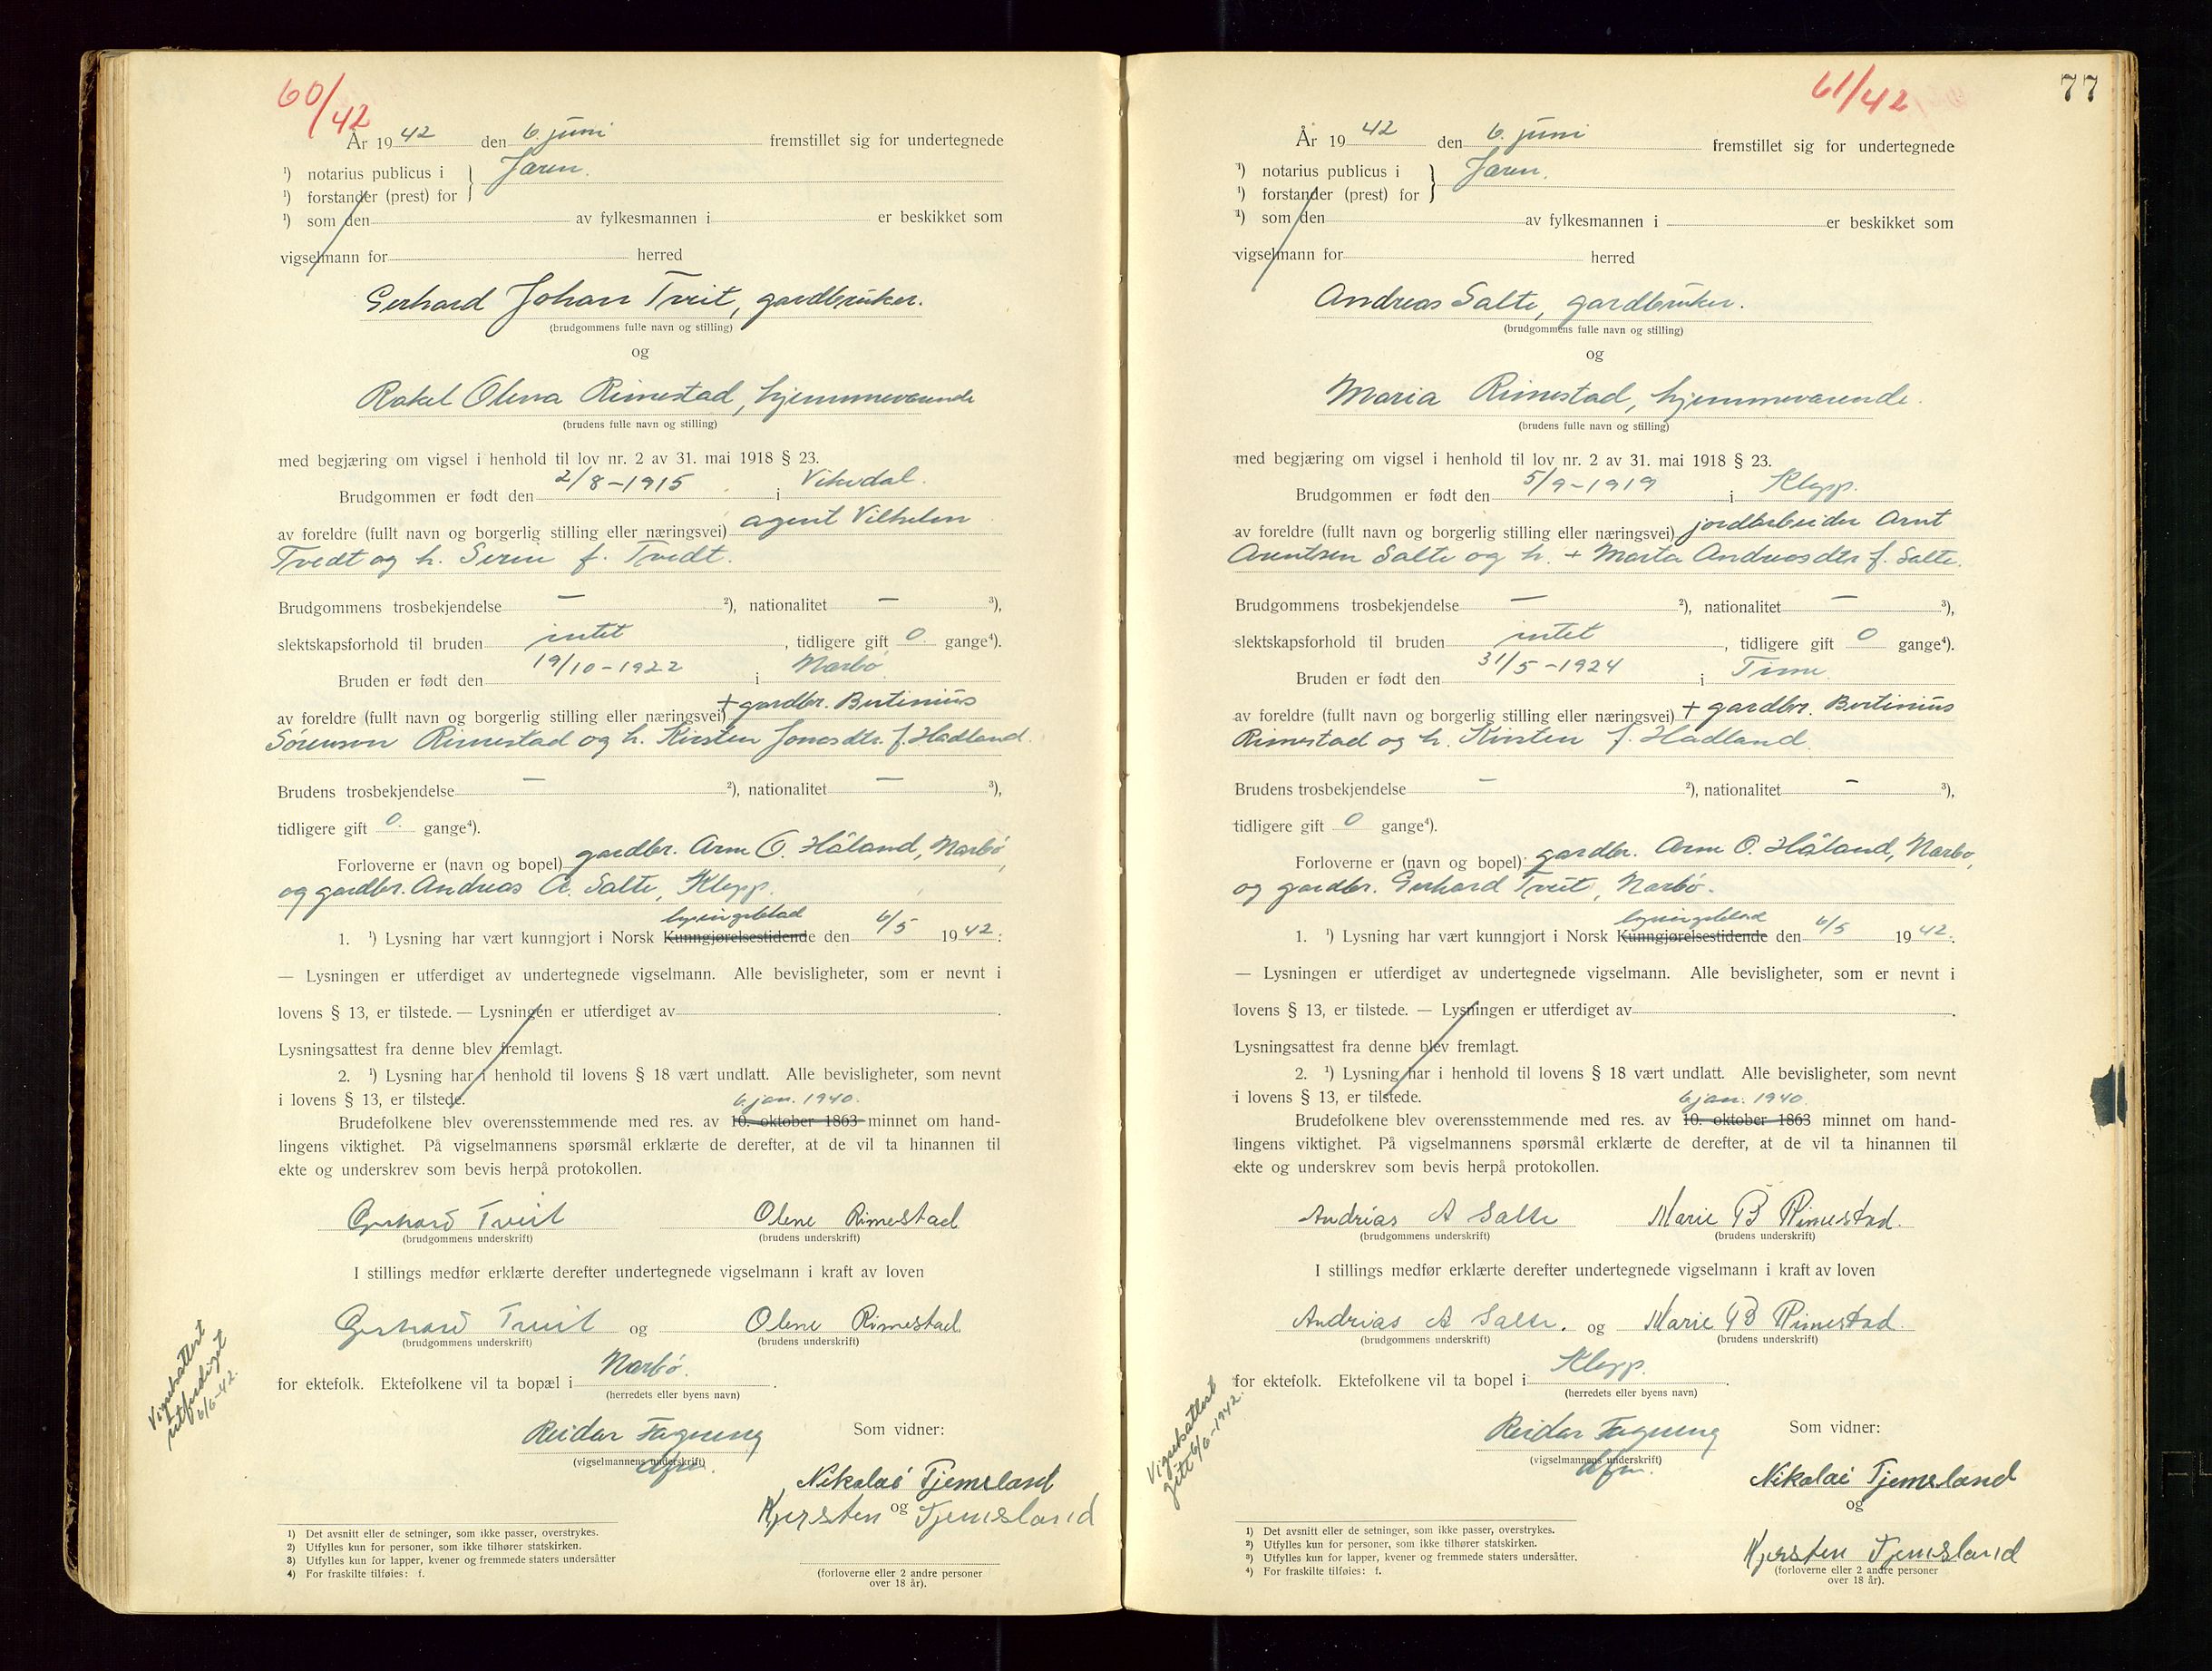 60/42
År 19 42 den 6. juni fremstillet sig for undertegnede
¹) notarius publicus i } Jæren.
¹) forstander (prest) for
¹) som den av fylkesmannen i er beskikket som
vigselmann for herred
Gerhard Johan Tveit, gardbruker.
(brudgommens fulle navn og stilling)
og
Rakel Olena Rimestad, hjemmeværende
(brudens fulle navn og stilling)
med begjæring om vigsel i henhold til lov nr. 2 av 31. mai 1918 § 23.
Brudgommen er født den 2/8-1915 i Vikedal.
av foreldre (fullt navn og borgerlig stilling eller næringsvei) agent Vilhelm
Tvedt og h. Serine f. Tvedt.
Brudgommens trosbekjendelse — ²), nationalitet — ³),
slektskapsforhold til bruden intet, tidligere gift 0 gange⁴).
Bruden er født den 19/10-1922 i Nærbø
av foreldre (fullt navn og borgerlig stilling eller næringsvei) + gardbr. Bertinius
Sørensen Rimestad og h. Kirsten Jonasdtr. f. Hadland.
Brudens trosbekjendelse — ²), nationalitet — ³),
tidligere gift 0. gange⁴).
Forloverne er (navn og bopel) gardbr. Arne O. Håland, Nærbø,
og gardbr. Andreas A. Salte, Klepp.
lysingsblad
1. ¹) Lysning har vært kunngjort i Norsk Kunngjørelsestidende den 6/5 1942.
— Lysningen er utferdiget av undertegnede vigselmann. Alle bevisligheter, som er nevnt i
lovens § 13, er tilstede. — Lysningen er utferdiget av .
Lysningsattest fra denne blev fremlagt.
2. ¹) Lysning har i henhold til lovens § 18 vært undlatt. Alle bevisligheter, som nevnt
i lovens § 13, er tilstede.
6 jan. 1940.
Brudefolkene blev overensstemmende med res. av 10. oktober 1863 minnet om hand-
lingens viktighet. På vigselmannens spørsmål erklærte de derefter, at de vil ta hinannen til
ekte og underskrev som bevis herpå protokollen.
Gerhard Tveit Olene Rimestad
(brudgommens underskrift) (brudens underskrift)
I stillings medfør erklærte derefter undertegnede vigselmann i kraft av loven
Gerhard Tveit og Olene Rimestad
(brudgommens underskrift) (brudens underskrift)
for ektefolk. Ektefolkene vil ta bopæl i Nærbø.
(herredets eller byens navn)
Vigselsattest
utferdiget
6/6-42.
Reidar Fagnæng Som vidner:
(vigselmannens underskrift)
dfm.
Nikolai Tjemsland
og
Kjersten Tjemsland
1) Det avsnitt eller de setninger, som ikke passer, overstrykes.
2) Utfylles kun for personer, som ikke tilhører statskirken.
3) Utfylles kun for lapper, kvener og fremmede staters undersåtter
4) For fraskilte tilføies: f.
(forloverne eller 2 andre personer
over 18 år).
61/42
77
År 19 42 den 6. juni fremstillet sig for undertegnede
¹) notarius publicus i } Jæren.
¹) forstander (prest) for
¹) som den av fylkesmannen i er beskikket som
vigselmann for herred
Andreas Salte, gardbruker.
(brudgommens fulle navn og stilling)
og
Maria Rimestad, hjemmeværende.
(brudens fulle navn og stilling)
med begjæring om vigsel i henhold til lov nr. 2 av 31. mai 1918 § 23.
Brudgommen er født den 5/9-1919 i Klepp.
av foreldre (fullt navn og borgerlig stilling eller næringsvei) jordarbeider Arnt
Arentsen Salte og h. + Marta Andreasdtr f. Salte.
Brudgommens trosbekjendelse — ²), nationalitet — ³),
slektskapsforhold til bruden intet, tidligere gift 0 gange⁴).
Bruden er født den 31/5-1924 i Time.
av foreldre (fullt navn og borgerlig stilling eller næringsvei) + gardbr. Bertinius
Rimestad og h. Kirsten f. Hadland.
Brudens trosbekjendelse — ²), nationalitet — ³),
tidligere gift 0 gange⁴).
Forloverne er (navn og bopel): gardbr. Arne O. Håland, Nærbø,
og gardbr. Gerhard Tveit, Nærbø.
lysingsblad
1. ¹) Lysning har vært kunngjort i Norsk Kunngjørelsestidende den 6/5 1942.
— Lysningen er utferdiget av undertegnede vigselmann. Alle bevisligheter, som er nevnt i
lovens § 13, er tilstede. — Lysningen er utferdiget av .
Lysningsattest fra denne blev fremlagt.
2. ¹) Lysning har i henhold til lovens § 18 vært undlatt. Alle bevisligheter, som nevnt
i lovens § 13, er tilstede.
6 jan. 1940.
Brudefolkene blev overensstemmende med res. av 10. oktober 1863 minnet om hand-
lingens viktighet. På vigselmannens spørsmål erklærte de derefter, at de vil ta hinannen til
ekte og underskrev som bevis herpå protokollen.
Andrias A Salte Marie B Rimestad.
(brudgommens underskrift) (brudens underskrift)
I stillings medfør erklærte derefter undertegnede vigselmann i kraft av loven
Andrias A Salte. og Marie B Rimestad.
(brudgommens underskrift) (brudens underskrift)
for ektefolk. Ektefolkene vil ta bopel i Klepp.
(herredets eller byens navn)
Vigselsattest
gitt 6/6-1942.
Reidar Fagnæng Som vidner:
(vigselmannens underskrift)
dfm.
Nikolai Tjemsland
og
Kjersten Tjemsland
1) Det avsnitt eller de setninger, som ikke passer, overstrykes.
2) Utfylles kun for personer, som ikke tilhører statskirken.
3) Utfylles kun for lapper, kvener og fremmede staters undersåtter.
4) For fraskilte tilføies: f.
(forloverne eller 2 andre personer
over 18 år).